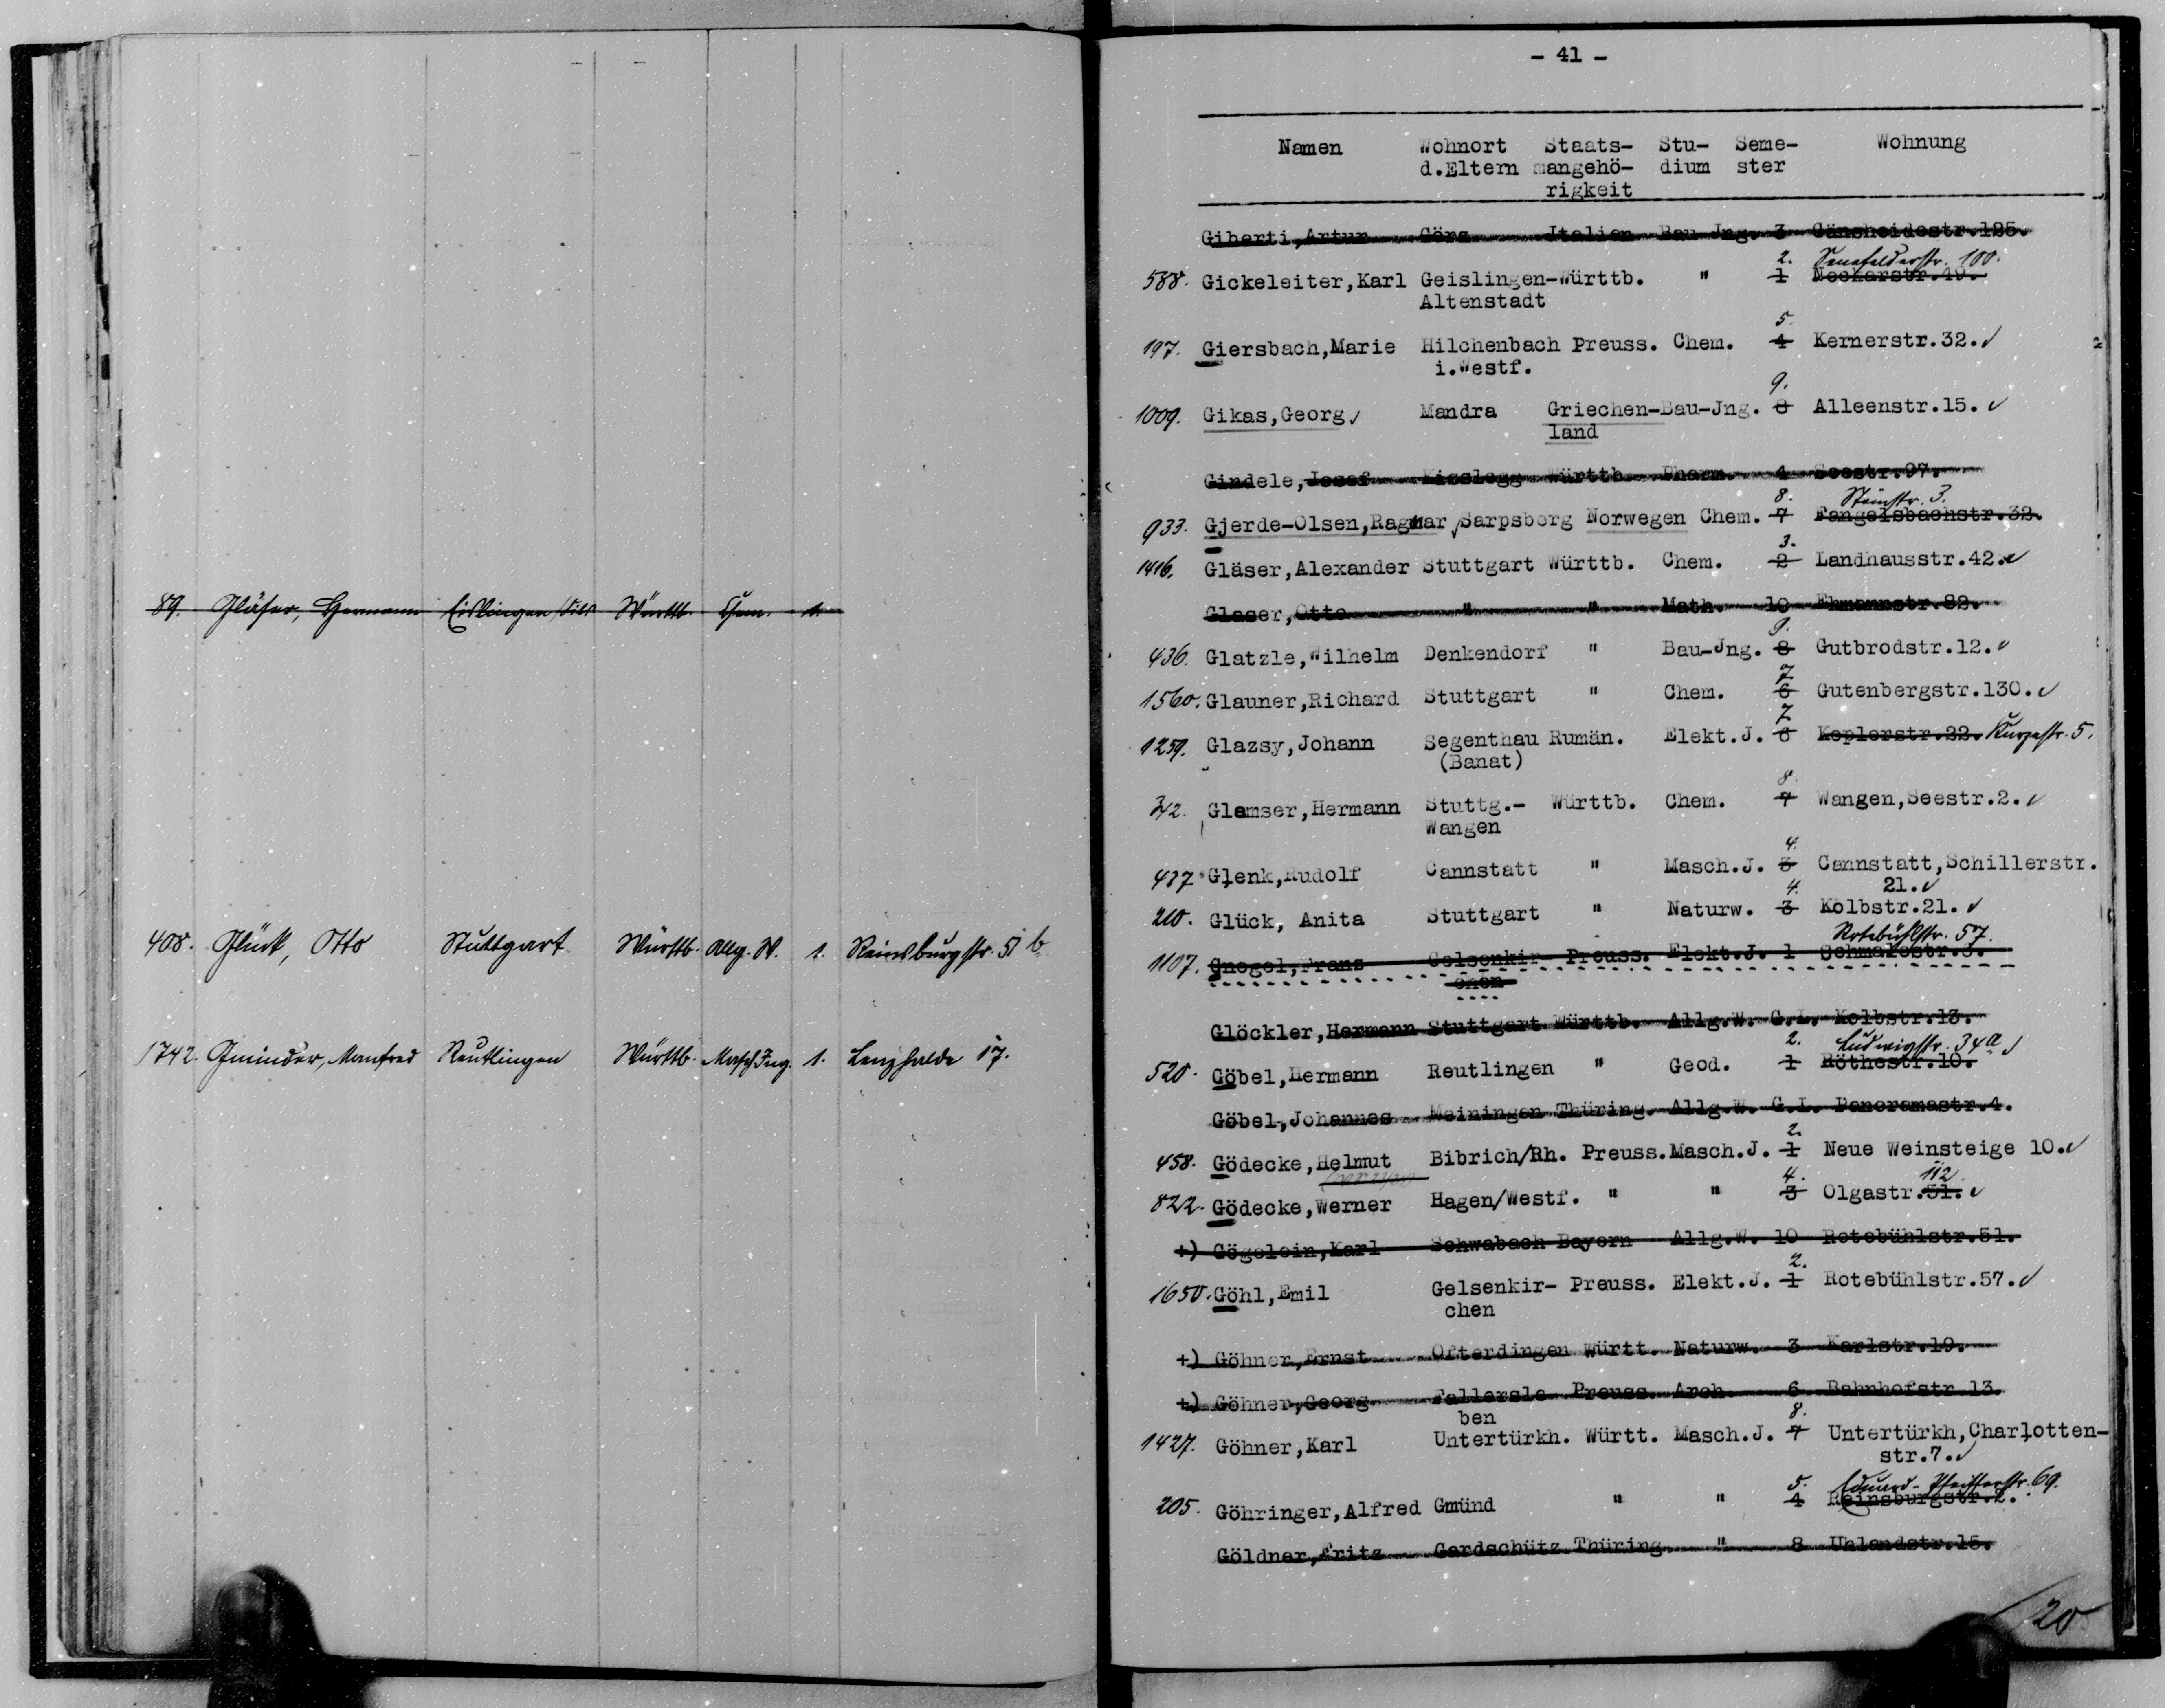 89. Gläser, Hermann Eislingen/Fils Württb. Chem. 1.
408. Glück, Otto Stuttgart Württb. Allg. W. 1. Reinsburgstr. 51 b
1742. Gminder, Manfred Reutlingen Württb. Masch Ing. 1. Lenzhalde 17.
- 41 -
Namen Wohnort Staats- Stu- Seme- Wohnung
d.Eltern mangehö- dium ster
rigkeit
Giberti,Artur Görz Italien Bau-Jng. 3 Gänsheidestr.125.
2. Senefelderstr. 100.
588. Gickeleiter,Karl Geislingen-Württb. " 1 Neckarstr.49.
Altenstadt
5.
197. Giersbach,Marie Hilchenbach Preuss. Chem. 4 Kernerstr.32.
i.Westf.
9.
1009. Gikas,Georg Mandra Griechen-Bau-Jng. 8 Alleenstr.15.
land
Gindele,Josef Kisslegg Württb. Pharm. 4 Seestr.97.
8. Steinstr. 3.
933. Gjerde-Olsen,Ragnar Sarpsborg Norwegen Chem. 7 Fangelsbachstr.32.
3.
1416. Gläser,Alexander Stuttgart Württb. Chem. 2 Landhausstr.42.
Glaser,Otto " " Math. 10 Ehmannstr.82.
9.
436. Glatzle,Wilhelm Denkendorf " Bau-Jng. 8 Gutbrodstr.12.
7.
1560. Glauner,Richard Stuttgart " Chem. 6 Gutenbergstr.130.
7.
1259. Glazsy,Johann Segenthau Rumän. Elekt.J. 6 Keplerstr.22. Kurzestr. 5.
(Banat)
8.
342. Glemser,Hermann Stuttg.- Württb. Chem. 7 Wangen,Seestr.2.
Wangen
4.
437 Glenk,Rudolf Cannstatt " Masch.J. 3 Cannstatt,Schillerstr.
4. 21.
210. Glück, Anita Stuttgart " Naturw. 3 Kolbstr.21.
Rotebühlstr. 57.
1107. Gnegel,Franz Gelsenkir- Preuss. Elekt.J. 1 Schmalestr.3.
chen
Glöckler,Hermann Stuttgart Württb. Allg.W. G.L. Kolbstr.13.
2. Ludwigstr. 34a
520. Göbel,Hermann Reutlingen " Geod. 1 Röthestr.10.
Göbel,Johannes Meiningen Thüring. Allg.W. G.L. Panoramastr.4.
2.
458. Gödecke,Helmut Bibrich/Rh. Preuss. Masch.J. 1 Neue Weinsteige 10.
4. 112.
822. Gödecke,Werner Hagen/Westf. " " 3 Olgastr.51.
+) Gögelein,Karl Schwabach Bayern Allg.W. 10 Rotebühlstr.51.
2.
1650. Göhl,Emil Gelsenkir- Preuss. Elekt.J. 1 Rotebühlstr.57.
chen
+) Göhner,Ernst Ofterdingen Württ. Naturw. 3 Karlstr.19.
+) Göhner,Georg Fallersle- Preuss. Arch. 6 Bahnhofstr.13.
ben 8.
1427. Göhner,Karl Untertürkh. Württ. Masch.J. 7 Untertürkh,Charlotten-
str.7.
5. Eduard-Pfeifferstr. 69.
205. Göhringer,Alfred Gmünd " " 4 Reinsburgstr.2.
Göldner,Fritz Gerdschütz Thüring. " 8 Uhlandstr.15.
20